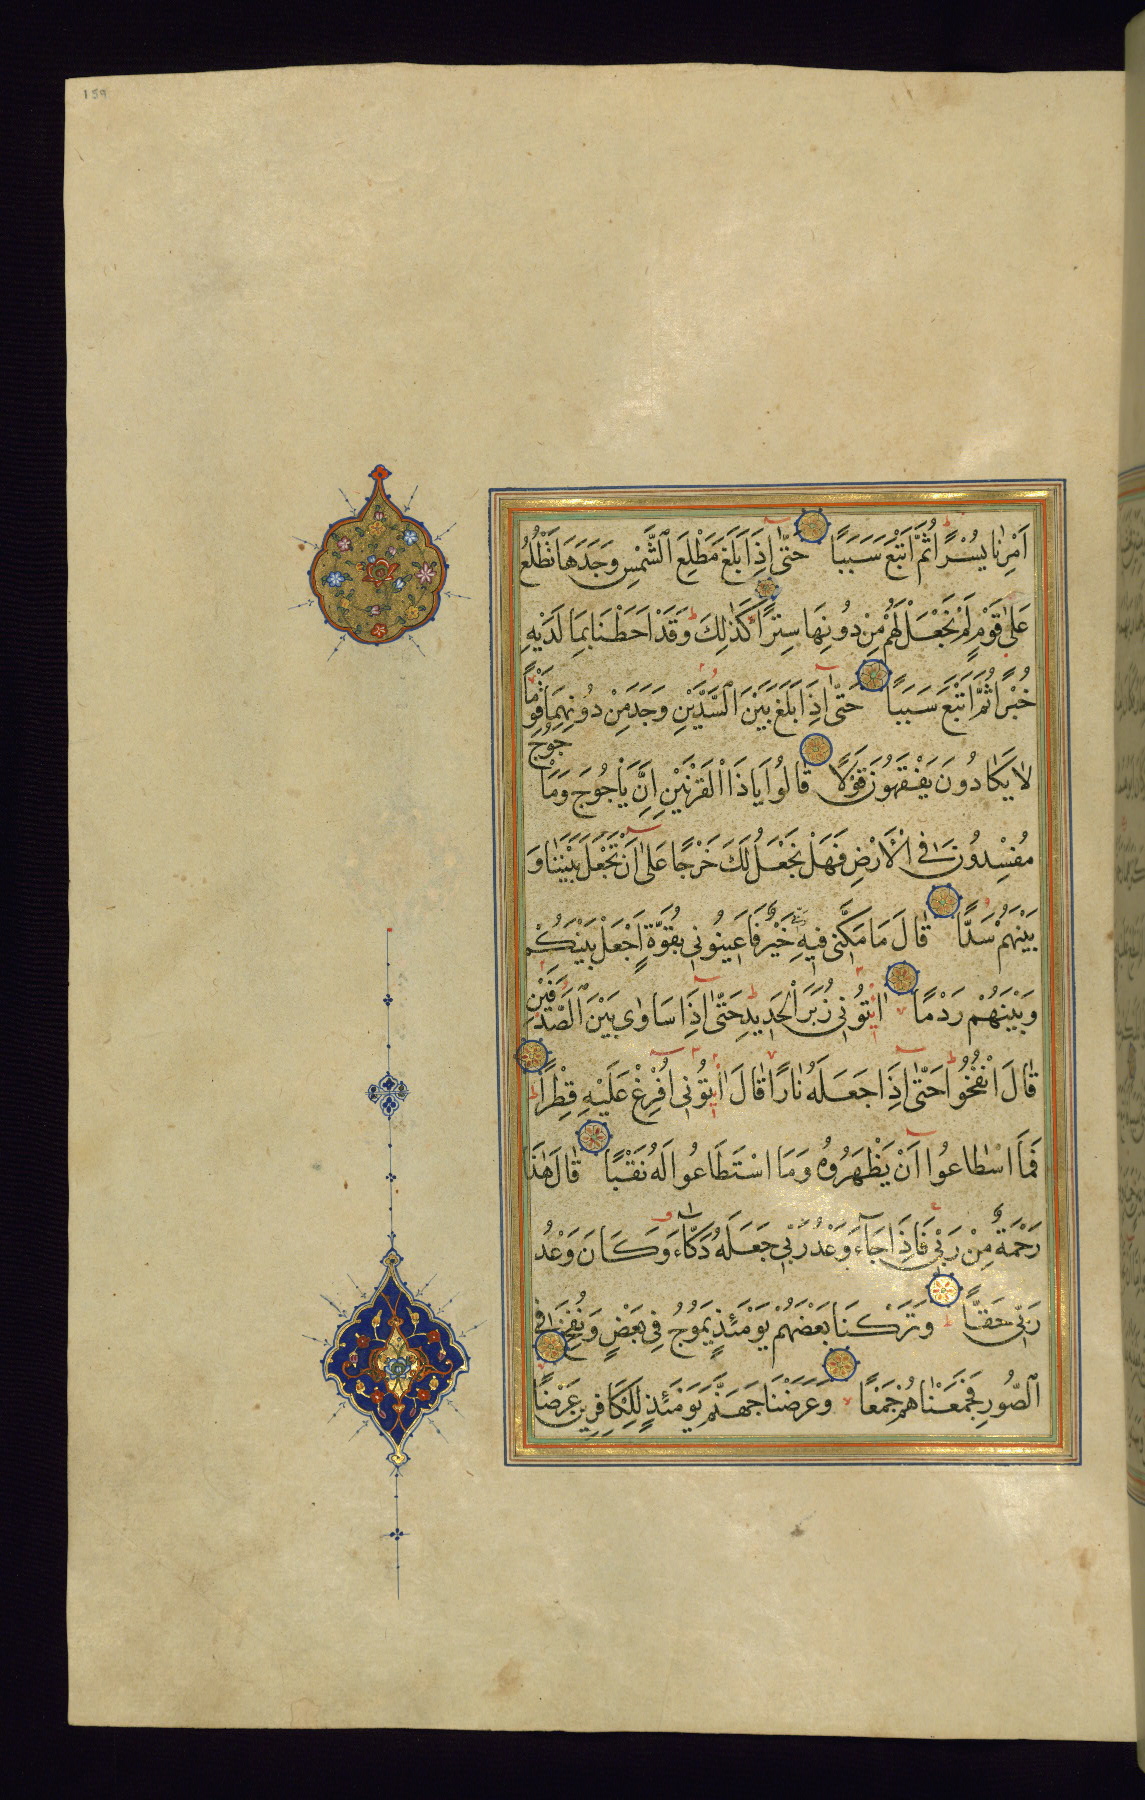 159
اَمْرِنَا يُسْرًا ثُمَّ اَتْبَعَ سَبَبًا حَتّٰى اِذَا بَلَغَ مَطْلِعَ الشَّمْسِ وَجَدَهَا تَطْلُعُ
عَلٰى قَوْمٍ لَمْ نَجْعَلْ لَهُمْ مِنْ دُونِهَا سِتْرًا كَذٰلِكَ وَقَدْ اَحَطْنَا بِمَا لَدَيْهِ
خُبْرًا ثُمَّ اَتْبَعَ سَبَبًا حَتّٰى اِذَا بَلَغَ بَيْنَ السَّدَّيْنِ وَجَدَ مِنْ دُونِهِمَا قَوْمًا
لَا يَكَادُونَ يَفْقَهُونَ قَوْلًا قَالُوا يَا ذَا الْقَرْنَيْنِ اِنَّ يَأْجُوجَ وَمَأْجُوجَ
مُفْسِدُونَ فِي الْاَرْضِ فَهَلْ نَجْعَلُ لَكَ خَرْجًا عَلٰى اَنْ تَجْعَلَ بَيْنَنَا وَ
بَيْنَهُمْ سَدًّا قَالَ مَا مَكَّنِّي فِيهِ رَبِّي خَيْرٌ فَاَعِينُونِي بِقُوَّةٍ اَجْعَلْ بَيْنَكُمْ
وَبَيْنَهُمْ رَدْمًا اٰتُونِي زُبَرَ الْحَدِيدِ حَتّٰى اِذَا سَاوٰى بَيْنَ الصَّدَفَيْنِ
قَالَ انْفُخُوا حَتّٰى اِذَا جَعَلَهُ نَارًا قَالَ اٰتُونِي اُفْرِغْ عَلَيْهِ قِطْرًا
فَمَا اسْطَاعُوا اَنْ يَظْهَرُوهُ وَمَا اسْتَطَاعُوا لَهُ نَقْبًا قَالَ هٰذَا
رَحْمَةٌ مِنْ رَبِّي فَاِذَا جَاءَ وَعْدُ رَبِّي جَعَلَهُ دَكَّاءَ وَكَانَ وَعْدُ
رَبِّي حَقًّا وَتَرَكْنَا بَعْضَهُمْ يَوْمَئِذٍ يَمُوجُ فِي بَعْضٍ وَنُفِخَ فِي
الصُّورِ فَجَمَعْنَاهُمْ جَمْعًا وَعَرَضْنَا جَهَنَّمَ يَوْمَئِذٍ لِلْكَافِرِينَ عَرْضًا